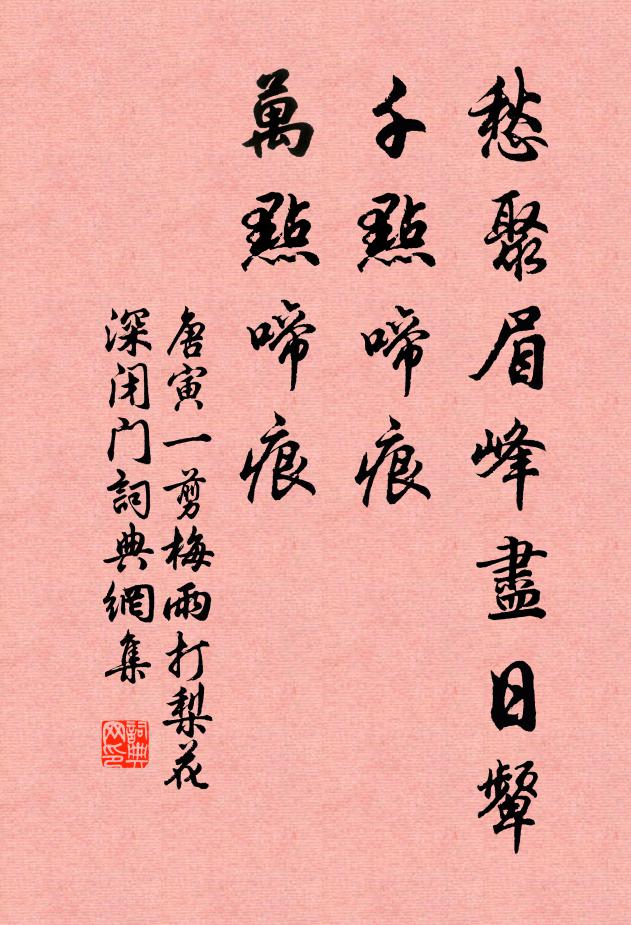 愁聚眉峰盡日顰
千點啼痕
萬點啼痕
唐寅一剪梅雨打梨花
深闭门詞典網集
詞典
网印